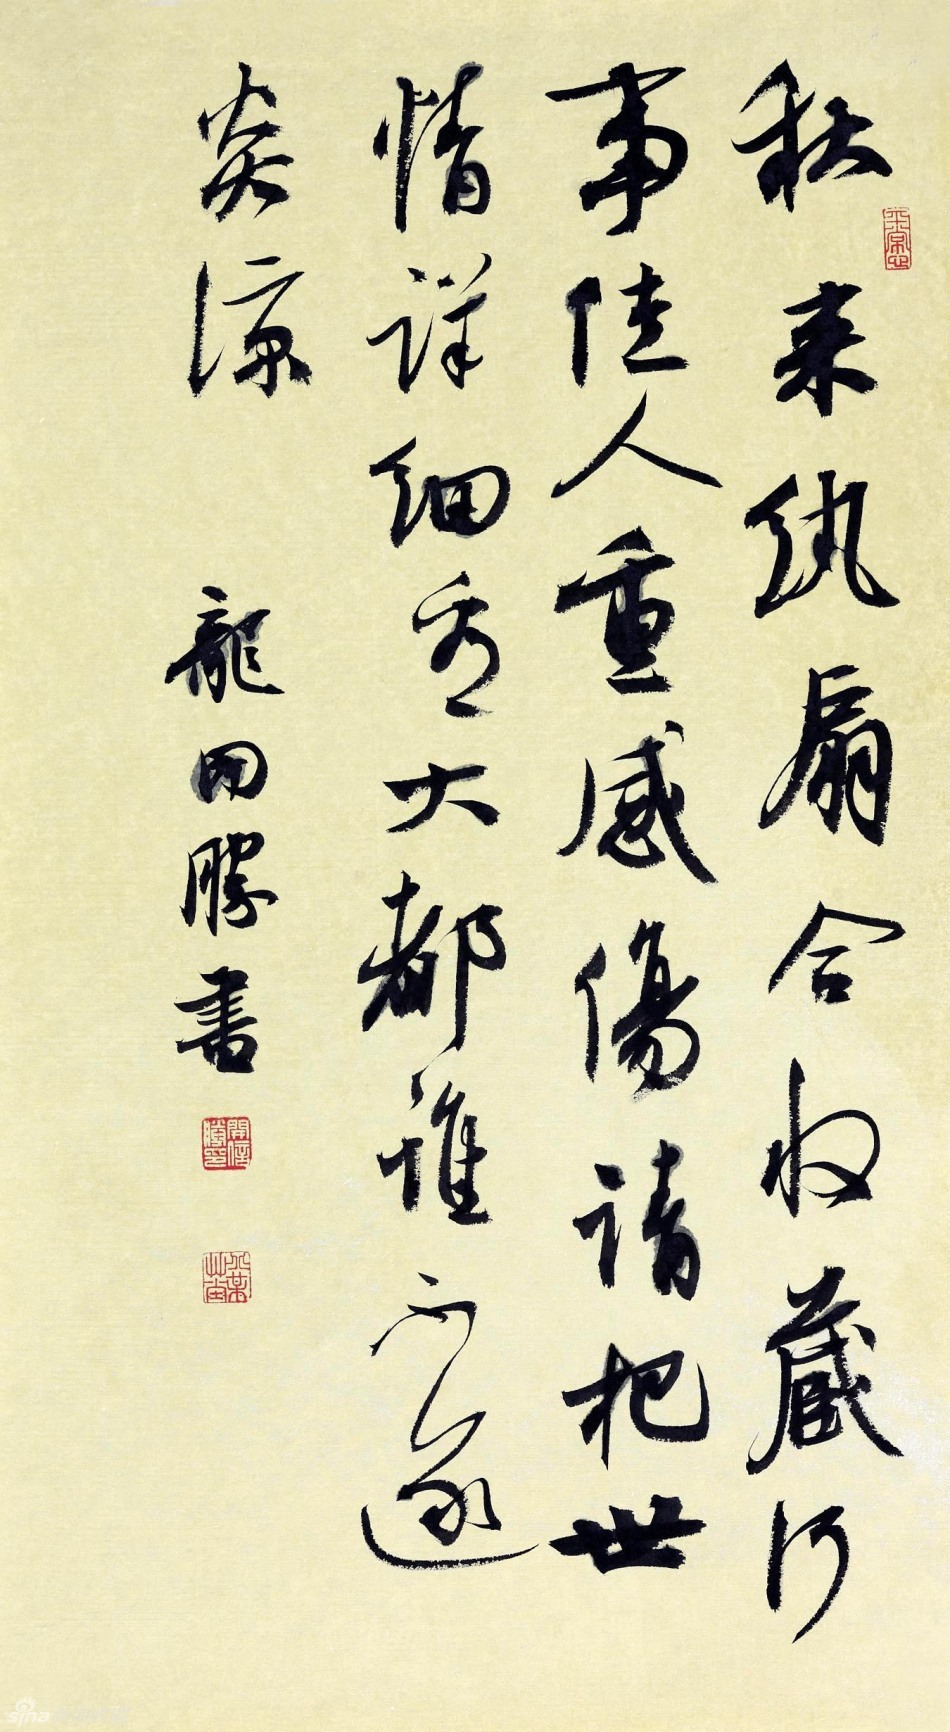 秋来纨扇合收藏何
事佳人重感傷請把世
情詳細看大都誰不逐
炎凉
龍開勝書
sina